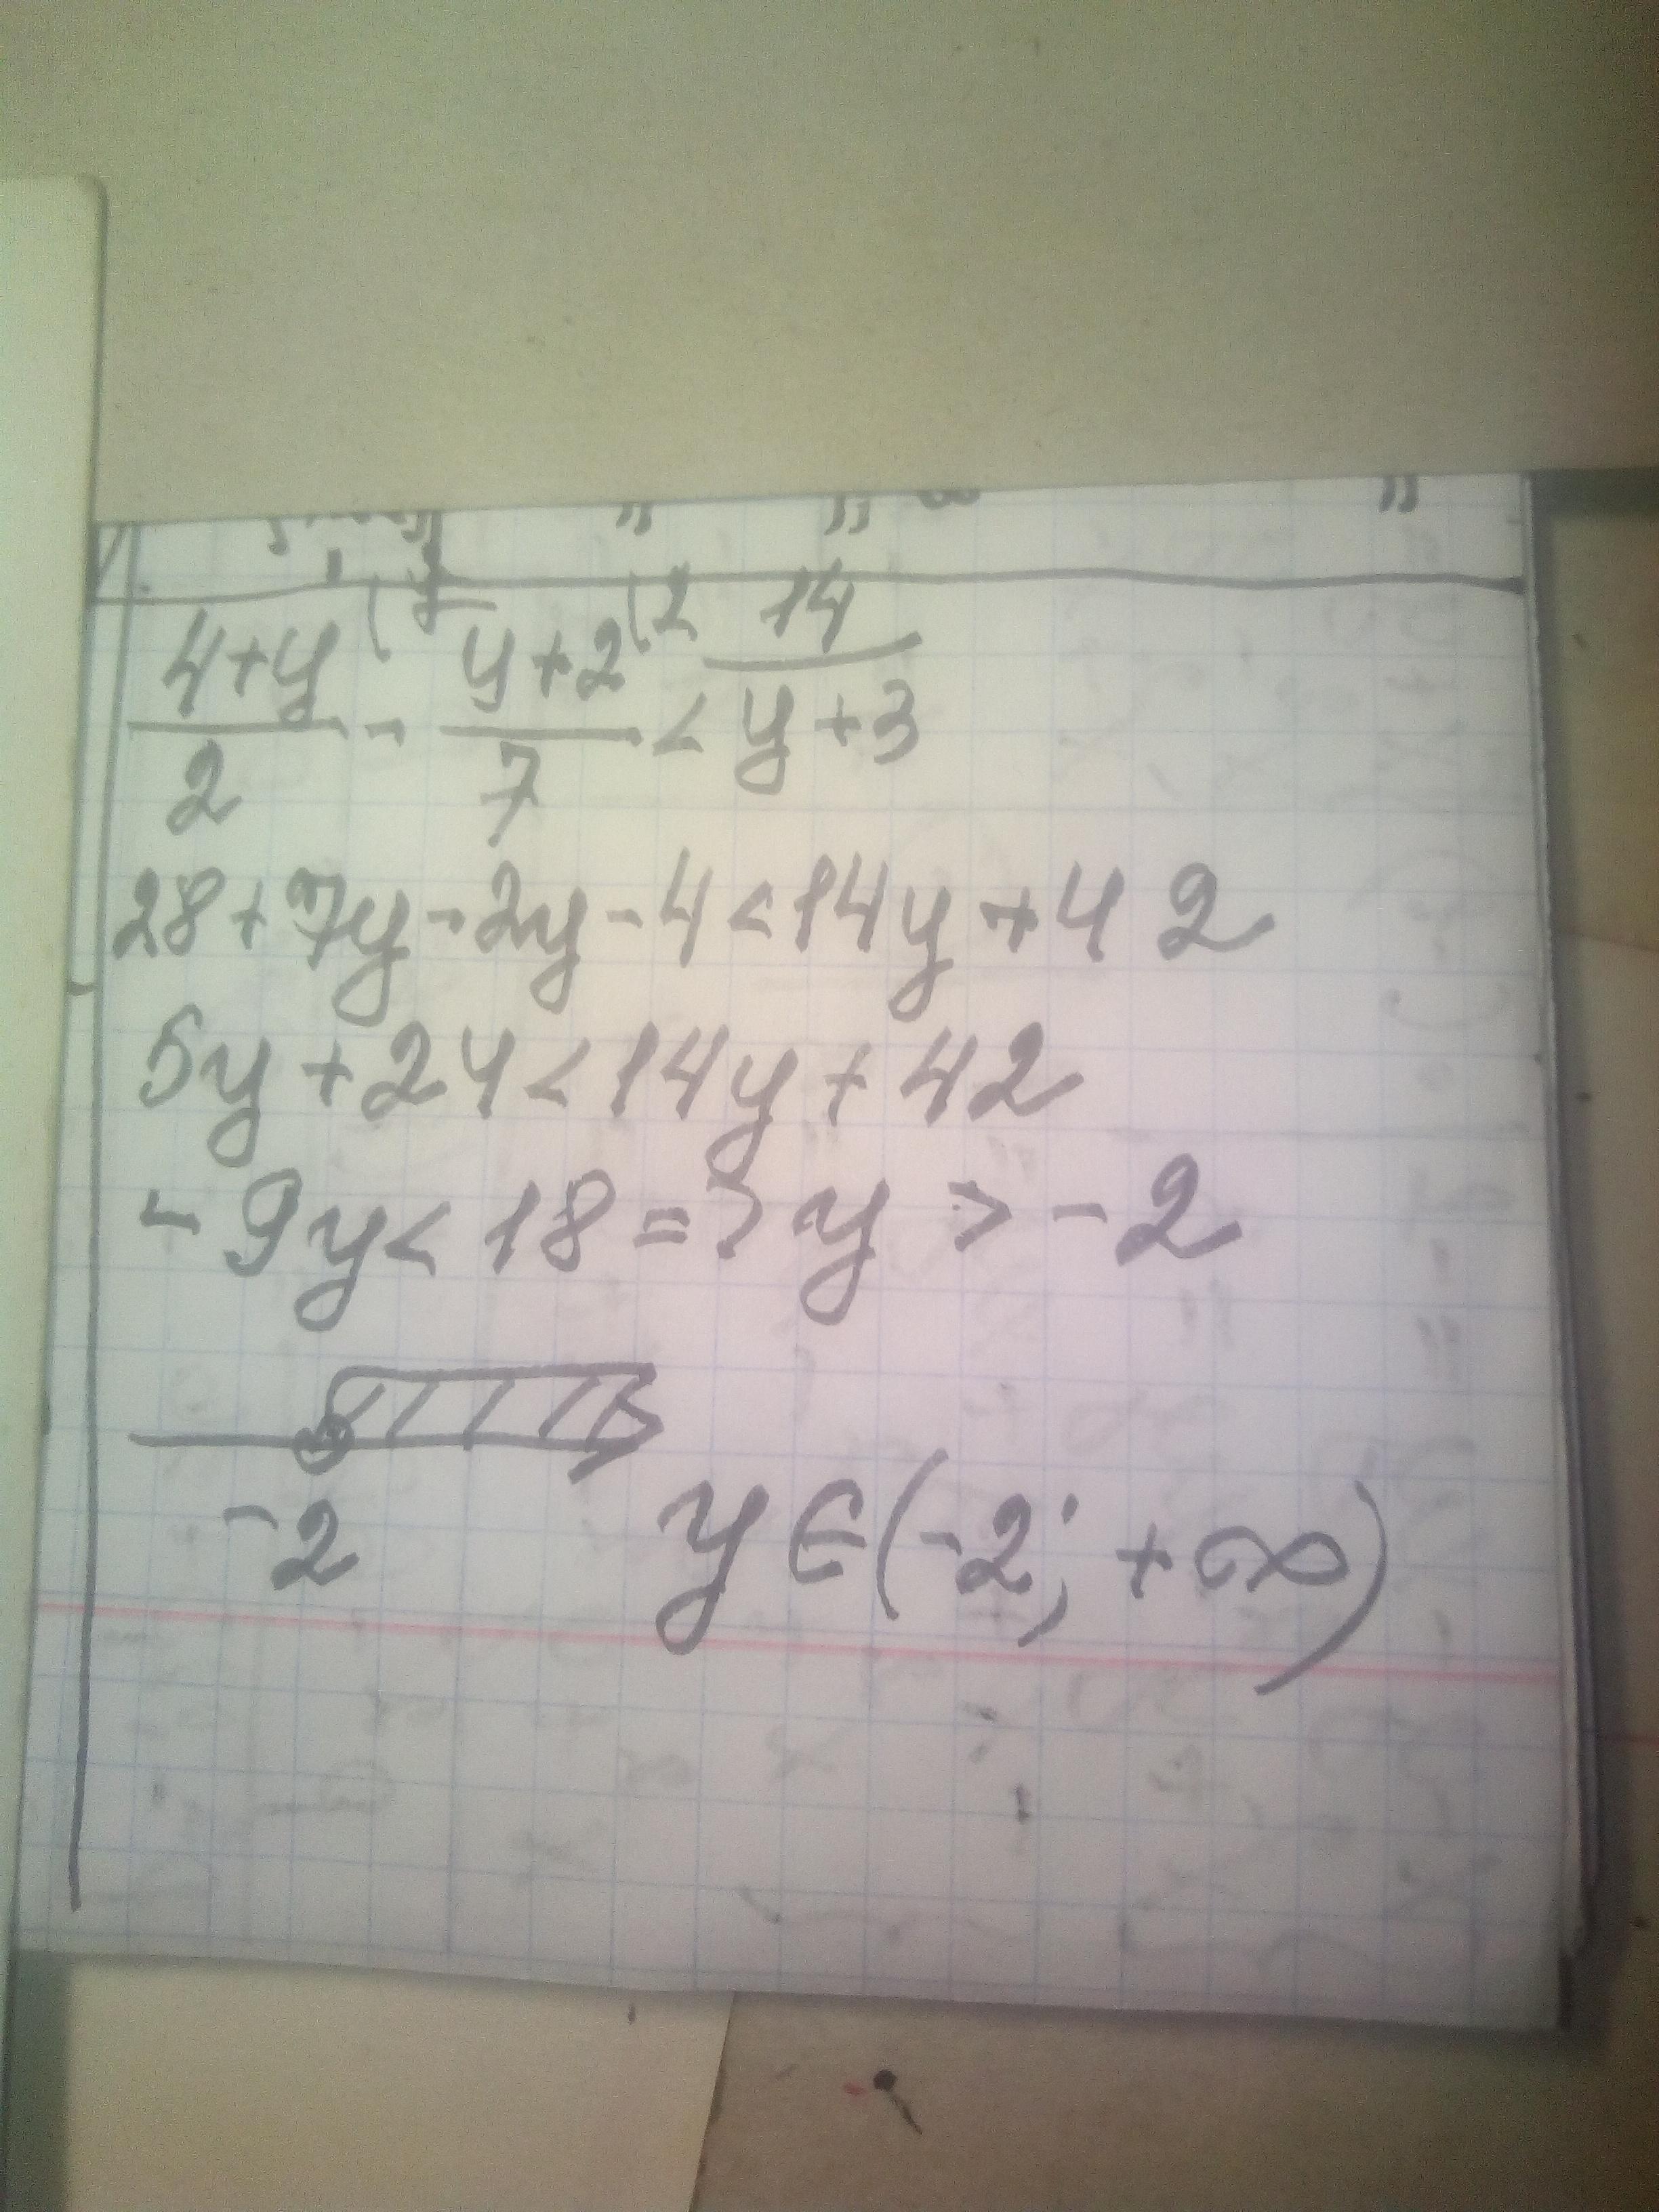 4+y (7 y+2 (2 14
2 - 7 < y+3
28+7y-2y-4<14y+42
5y+24<14y+42
-9y<18=>y>-2
-2 y∈(-2;+∞)